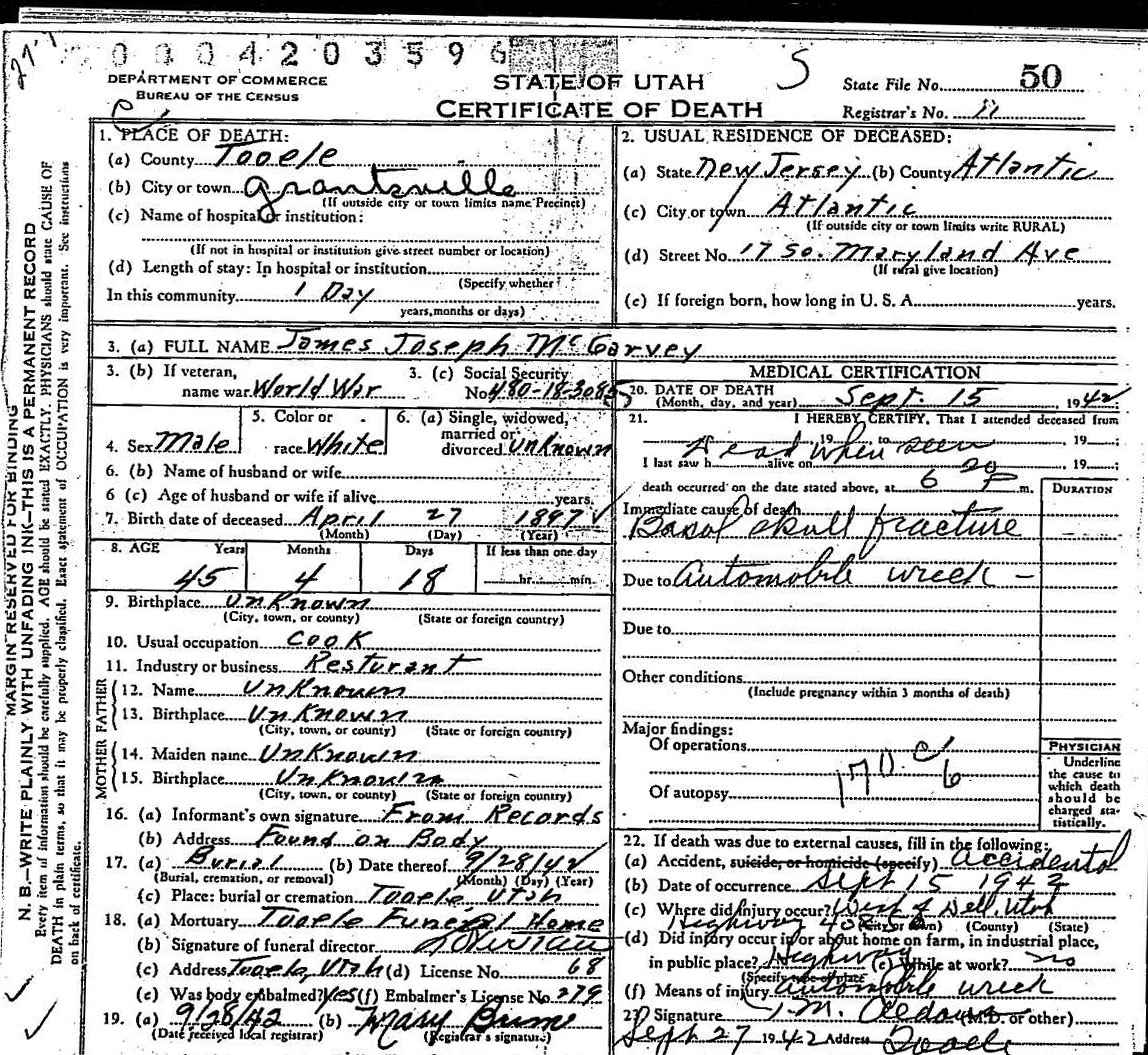 0004203596
DEPARTMENT OF COMMERCE
BUREAU OF THE CENSUS
STATE OF UTAH
CERTIFICATE OF DEATH
S
State File No. 50
Registrar's No. 11
MARGIN RESERVED FOR BINDING
N. B.—WRITE PLAINLY WITH UNFADING INK—THIS IS A PERMANENT RECORD
Every item of information should be carefully supplied. AGE should be stated EXACTLY. PHYSICIANS should state CAUSE OF
DEATH in plain terms, so that it may be properly classified. Exact statement of OCCUPATION is very important. See instructions
on back of certificate.
1. PLACE OF DEATH:
(a) County Tooele
(b) City or town Grantsville
(If outside city or town limits name Precinct)
(c) Name of hospital or institution:
(If not in hospital or institution give street number or location)
(d) Length of stay: In hospital or institution
(Specify whether
In this community 1 Day
years, months or days)
2. USUAL RESIDENCE OF DECEASED:
(a) State New Jersey (b) County Atlantic
(c) City or town Atlantic
(If outside city or town limits write RURAL)
(d) Street No. 17 So. Maryland Ave
(If rural give location)
(e) If foreign born, how long in U. S. A. years.
3. (a) FULL NAME James Joseph McGarvey
3. (b) If veteran,
name war World War
3. (c) Social Security
No. 480-18-3085
4. Sex Male
5. Color or
race White
6. (a) Single, widowed,
married or
divorced Unknown
6. (b) Name of husband or wife
6 (c) Age of husband or wife if alive years.
7. Birth date of deceased April 27 1897
(Month) (Day) (Year)
8. AGE Years Months Days If less than one day
45 4 18 hr. min.
9. Birthplace Unknown
(City, town, or county) (State or foreign country)
10. Usual occupation Cook
11. Industry or business Resturant
FATHER
12. Name Unknown
13. Birthplace Unknown
(City, town, or county) (State or foreign country)
MOTHER
14. Maiden name Unknown
15. Birthplace Unknown
(City, town, or county) (State or foreign country)
16. (a) Informant's own signature From Records
(b) Address Found on Body
17. (a) Burial (b) Date thereof 9/28/42
(Burial, cremation, or removal) (Month) (Day) (Year)
(c) Place: burial or cremation Tooele, Utah
18. (a) Mortuary Tooele Funeral Home
(b) Signature of funeral director
(c) Address Tooele, Utah (d) License No. 68
(e) Was body embalmed? Yes (f) Embalmer's License No. 279
19. (a) 9/28/42 (b) Mary
(Date received local registrar) (Registrar's signature)
MEDICAL CERTIFICATION
20. DATE OF DEATH
(Month, day, and year) Sept. 15, 1942
21. I HEREBY CERTIFY, That I attended deceased from
, 19 to , 19
Dead when seen
I last saw h alive on , 19 ;
death occurred on the date stated above, at 6 20 P m.
DURATION
Immediate cause of death
Basol skull fracture
Due to Automobile wreck -
Due to
Other conditions
(Include pregnancy within 3 months of death)
Major findings:
Of operations
170 c
6
Of autopsy
PHYSICIAN
Underline
the cause to
which death
should be
charged sta-
tistically.
22. If death was due to external causes, fill in the following:
(a) Accident, suicide, or homicide (specify) accidental
(b) Date of occurrence Sept 15 1942
(c) Where did injury occur? West of Dell. Utah
Highway 40
(City or town) (County) (State)
(d) Did injury occur in or about home on farm, in industrial place,
in public place? Highway (e) While at work? no
(Specify type of place)
(f) Means of injury automobile wreck
23 Signature (M.D. or other)
Sept 27 1942 Address Tooele